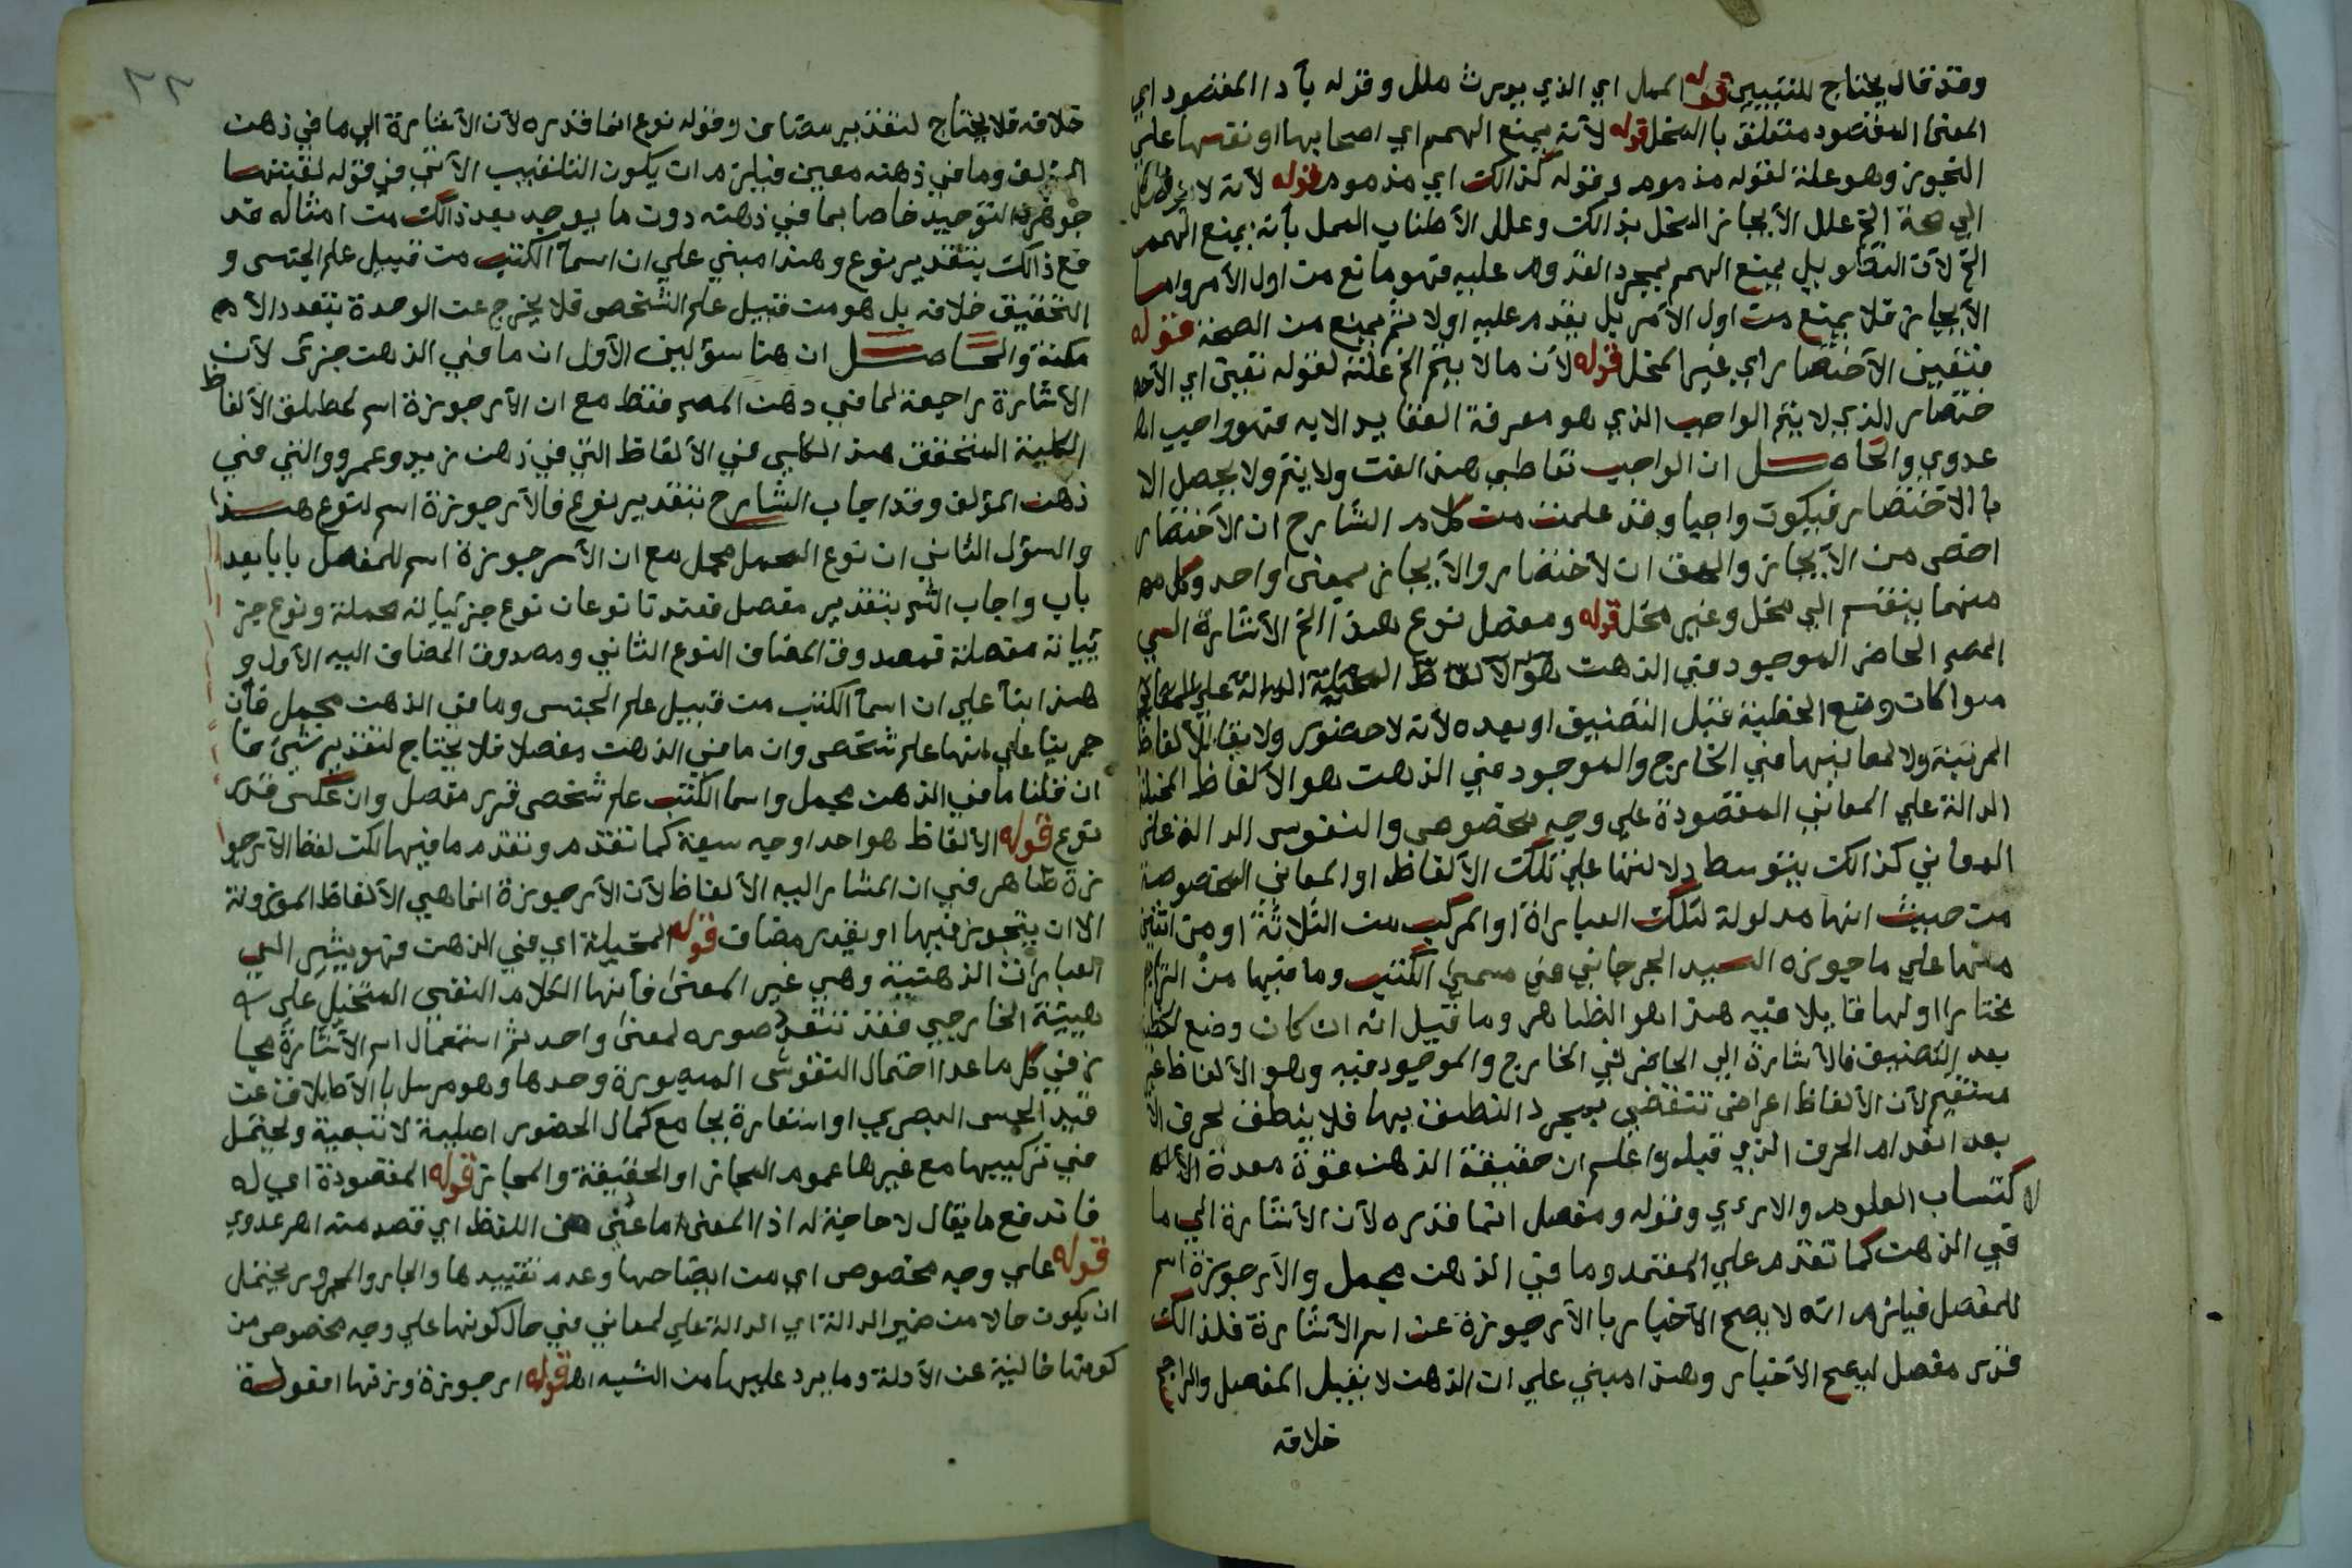 وقد قال يحتاج للتبيين قوله الممل اي الذي يورث ملل وقوله بأدا المقصود اي
المعنا المقصود متعلق بالمخل قوله لأنه يمنع الهمم اي اصحابها او نفسها علي
التجوز وهو علة لقوله مذموم وقوله كذالك اي مذموم قوله لأنه لا
الي صحة الخ علل الأيجاز المخل بذالك وعلل الأطناب الممل بأنه يمنع الهمم
الخ لأن التطويل يمنع الهمم بمجرد القدوم عليه فهو مانع من اول الأمر واما
الأيجاز فلا يمنع من اول الأمر بل يقدم عليه اولا ثم يمنع من الصحة قوله
فتعين الأختصار اي غير المخل قوله لأن ما لا يتم الخ علة لقوله تعين اي الأخ
ختصار الذي لا يتم الواجب الذي هو معرفة العقايد الا به فهو واجب اه
عدوي والحاصل ان الواجب تعاطي هذا الفن ولا يتم ولا يحصل الا
با الاختصار فيكون واجبا وقد علمت من كلام الشارح ان الأختصار
اخص من الأيجاز والحق ان لأختصار والأيجاز بمعنى واحد وكل
منهما ينقسم الي مخل وغير مخل قوله ومفصل نوع هذا الخ الأشارة الي
المص الحاضر الموجود في الذهن هو الألفاظ المخيلة الدالة علي المعاني
سوا كان وضع الخطبة قبل التصنيف او بعده لأنه لا حضور ولا بقا للألفاظ
المرتبة ولا لمعانيها في الخارج والموجود في الذهن هو الألفاظ المخيلة
الدالة علي المعاني المقصودة علي وجه مخصوص والنقوس الدالة علي
المعاني كذالك بتوسط دلالتها علي تلك الألفاظ او المعاني المخصوصة
من حيث انها مدلولة لتلك العباراة او المركب من الثلاثة او من اثنين
منها علي ما جوزه السيد الجرجاني في مسمي الكتب وما فيها من التراجم
مختارا اولها قايلا فيه هذا هو الظاهر وما قيل انه ان كان وضع الخطبة
بعد التصنيف فالأشارة الي الحاضر في الخارج والموجود فيه وهو الألفاظ غير
مستقيم لأن الألفاظ اعراض تنقضي بمجرد النطق بها فلا ينطق بحرف الا
بعد انعدام الحرف الذي قبله واعلم ان حقيقة الذهن قوة معدة
لا كتساب العلوم والاراي وقوله ومفصل انما قدره لأن الأشارة الي ما
في الذهن كما تقدم علي المعتمد وما في الذهن مجمل والأرجوزة اسم
للمفصل فيلزم انه لا يصح الأخبار با الأرجوزة عن اسم الأشارة فلذالك
قدر مفصل ليصح الأخبار وهذا مبني علي ان الذهن لا يقبل المفصل والراجح
خلافه
٢٢
خلافه فلا يحتاج لتقدير مضاف وقوله نوع انما قدره لأن الأشارة الي ما في ذهن
المؤلف وما في ذهنه معين فيلزم ان يكون التلقيب الأتي في قوله لقبتها
جوهرة التوحيد خاصا بما في ذهنه دون ما يوجد بعد ذالك من امثاله قد
فع ذالك بتقدير نوع وهذا مبني علي ان اسمآ الكتب من قبيل علم الجنس و
التحقيق خلافه بل هو من قبيل علم الشخص فلا يخرج عن الوحدة بتعدد الأ
مكنة والحاصل ان هنا سؤلين الأول ان ما في الذهن جزئ لأن
الأشارة راجعة لما في ذهن المص فقط مع ان الأرجوزة اسم لمطلق الألفاظ
الكلية المتحقق هذا الكلي في الألفاظ التي في ذهن زيد وعمرو والتي في
ذهن المؤلف وقد اجاب الشارح بتقدير نوع فالأرجوزة اسم لنوع هذا
والسؤل الثاني ان نوع المجمل مجمل مع ان الأرجوزة اسم للمفصل بابا بعد
باب واجاب الش بتقدير مفصل فعندنا نوعان نوع جزئياته مجملة ونوع جز
ئياته مفصلة فمصدوق المضاف النوع الثاني ومصدوق المضاف اليه الأول و
هذا بنآ علي ان اسمآ الكتب من قبيل علم الجنس وما في الذهن مجمل فأن
جرينا علي انها علم شخص وان ما في الذهن مفصلا فلا يحتاج لتقدير شئ فا
ان قلنا ما في الذهن مجمل واسما الكتب علم شخص قدر مفصل وان عكس قدر
نوع قوله الألفاظ هو احد اوجه سبعة كما تقدم وتقدم ما فيها لكن لفظ الأرجو
زة ظاهر في ان المشار اليه الألفاظ لأن الأرجوزة انما هي الألفاظ الموزونة
الا ان يتجوز فيها او يقدر مضاف قوله المخيلة اي في الذهن فهو يشير الي
العبارات الذهنية وهي غير المعنى فأنها الكلام النفسي المتخيل علي
هيئة الخارجي فقد تتعدد صوره لمعنى واحد ثم استعمال اسم الأشارة مجا
ز في كل ما عدا احتمال النقوش المبصورة وحدها وهو مرسل با الأطلاق عن
قيد الحس البصري او استعارة بجامع كمال الحضور اصلية لا تبعية ويحتمل
في تركيبها مع غيرها عموم المجاز او الحقيقة والمجاز قوله المقصودة اي له
فاندفع ما يقال لا حاجة له اذا المعنى اما عني من اللفظ اي قصد منه اهر عدوي
قوله علي وجه مخصوص اي من ايضاحها وعدم تقييدها والجار والمجرور يحتمل
ان يكون حالا من ضمير الدالة اي الدالة علي لمعاني في حال كونها علي وجه مخصوص من
كونها خالية عن الأدلة وما يرد عليها من الشبه اهـ قوله ارجوزة وزنها افعولة